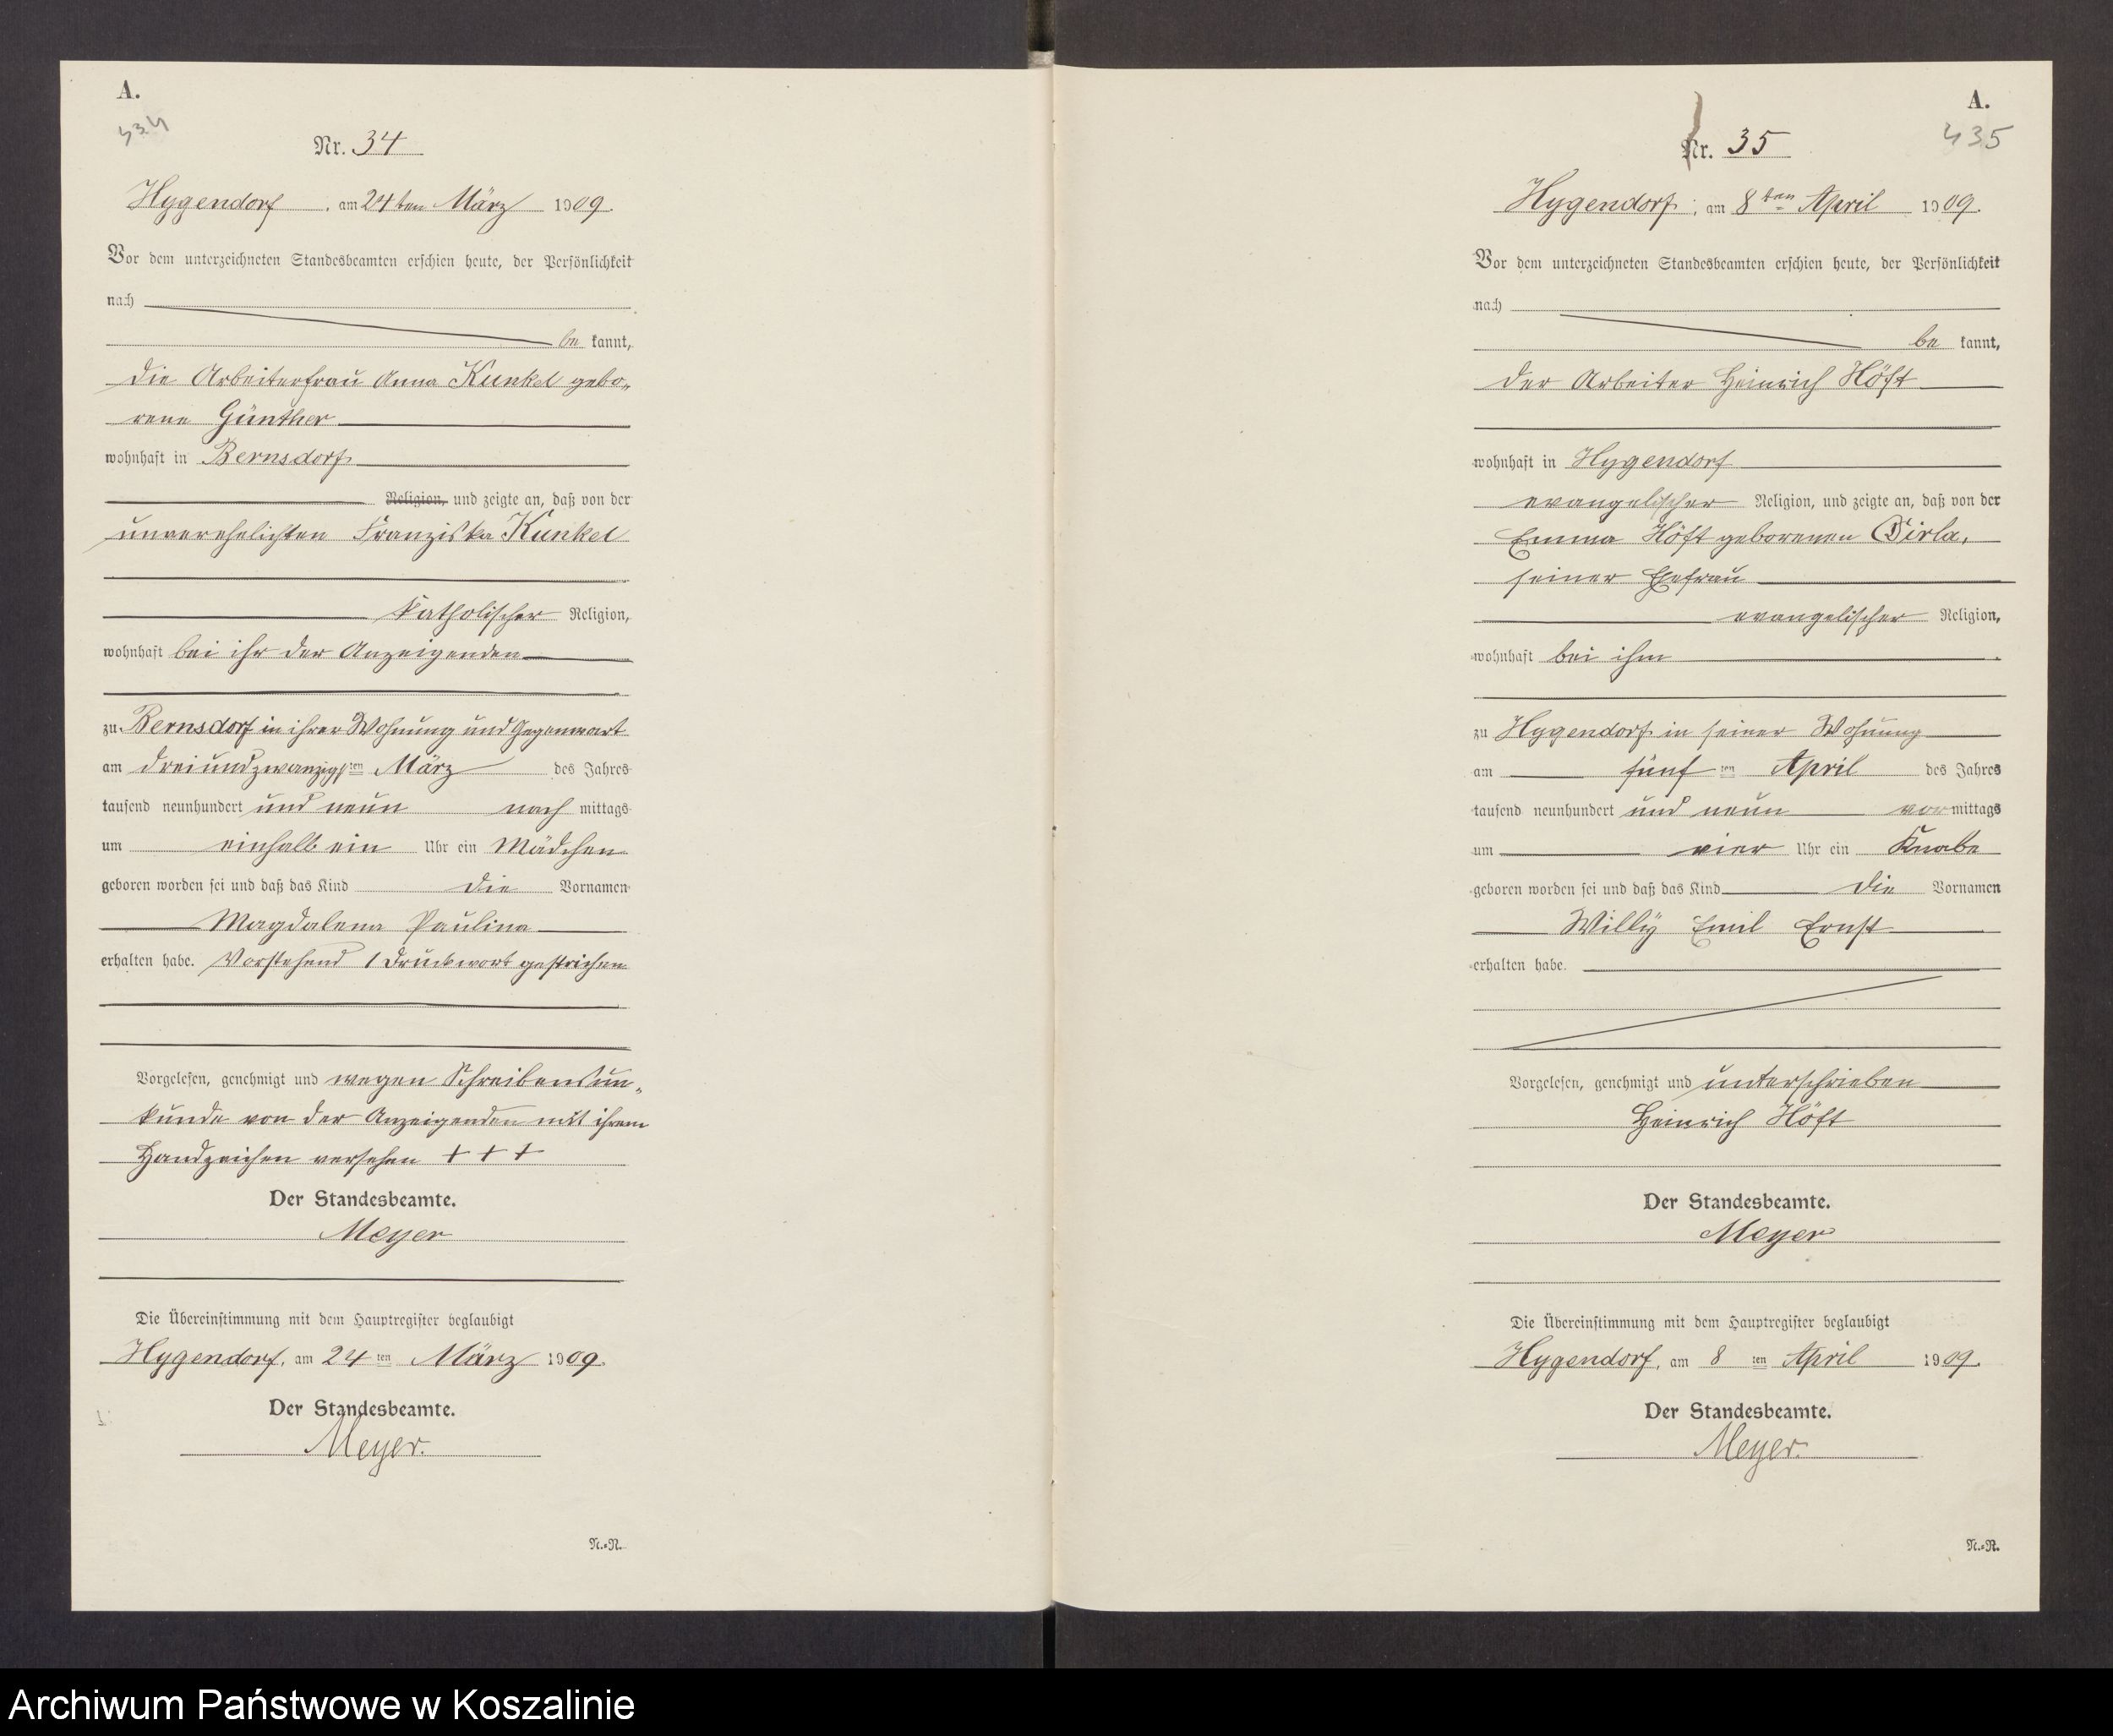 A.
434
Nr. 34
Hygendorf, am 24ten März 1909.
Vor dem unterzeichneten Standesbeamten erschien heute, der Persönlichkeit
nach
be kannt,
die Arbeiterfrau Anna Kunkel gebo„
rene Günther
wohnhaft in Bernsdorf
Religion, und zeigte an, daß von der
unverehelichten Franziska Kunkel
katholischer Religion,
wohnhaft bei ihr der Anzeigenden
zu Bernsdorf in ihrer Wohnung und Gegenwart
am dreiundzwanzigsten März des Jahres
tausend neunhundert und neun nach mittags
um einhalb ein Uhr ein Mädchen
geboren worden sei und daß das Kind die Vornamen
Magdalena Paulina
erhalten habe. Vorstehend 1 Druckwort gestrichen
Vorgelesen, genehmigt und wegen Schreibensun„
kunde von der Anzeigenden mit ihrem
Handzeichen versehen + + +
Der Standesbeamte.
Meyer
Die Übereinstimmung mit dem Hauptregister beglaubigt
Hygendorf, am 24ten März 1909.
Der Standesbeamte.
Meyer.
N.=R.
A.
435
Nr. 35
Hygendorf, am 8ten April 1909.
Vor dem unterzeichneten Standesbeamten erschien heute, der Persönlichkeit
nach
be kannt,
der Arbeiter Heinrich Höft
wohnhaft in Hygendorf
evangelischer Religion, und zeigte an, daß von der
Emma Höft geborenen Dirla,
seiner Ehefrau
evangelischer Religion,
wohnhaft bei ihm
zu Hygendorf in seiner Wohnung
am fünften April des Jahres
tausend neunhundert und neun vormittags
um vier Uhr ein Knabe
geboren worden sei und daß das Kind die Vornamen
Willy Emil Ernst
erhalten habe.
Vorgelesen, genehmigt und unterschrieben
Heinrich Höft
Der Standesbeamte.
Meyer
Die Übereinstimmung mit dem Hauptregister beglaubigt
Hygendorf, am 8ten April 1909.
Der Standesbeamte.
Meyer.
N.=R.
Archiwum Państwowe w Koszalinie